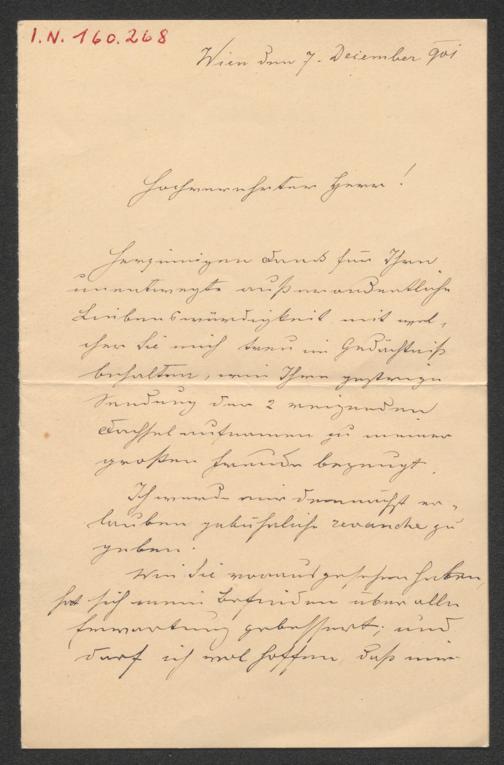 I.N. 160.268
Wien den 7. December 901
Hochverehrter Herr!
Herzinnigen Dank für Ihre
unentwegte außerordentliche
Liebenswürdigkeit mit wel-
cher Sie mich treu im Gedächtniß
behalten, wie Ihre gestrige
Sendung der 2 reizenden
Dachselaufnamen zu meiner
großen Freude bezeugt.
Ich werde mir demnächst er-
lauben gebührliche revanche zu
geben.
Wie Sie vorausgesehen haben,
hat sich mein Befinden über alle
Erwartung gebessert; und
darf ich wol hoffen, daß mir